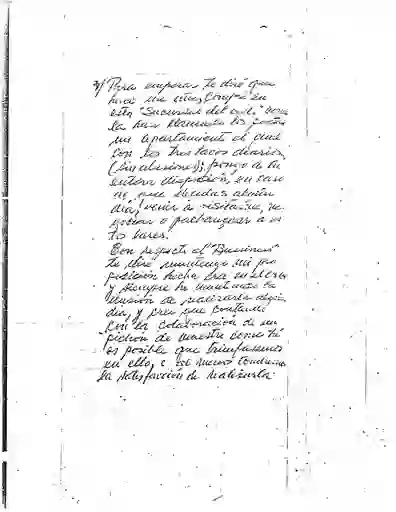 3/ Para empezar te diré que
hace un año, compré en
esta "Sucursal del exilio" como
la has llamado los
un apartamiento el cual
con los tres tacos diarios,
(sin alusiones); pongo a tu
entera disposición, en caso
de que decidas algún
día, venir a visitarme, ne
gociar o pachanguear a es
tos lares.
Con respecto al "Business"
te diré mantengo mi pro
posición hecha era
y siempre he mantenido la
ilusión de realizarla algún
día, y creo que contando
con la colaboración de un
pichón de maestro como tú
es posible que triunfásemos
en ello, o al menos tendríamos
la satisfacción de realizarla.